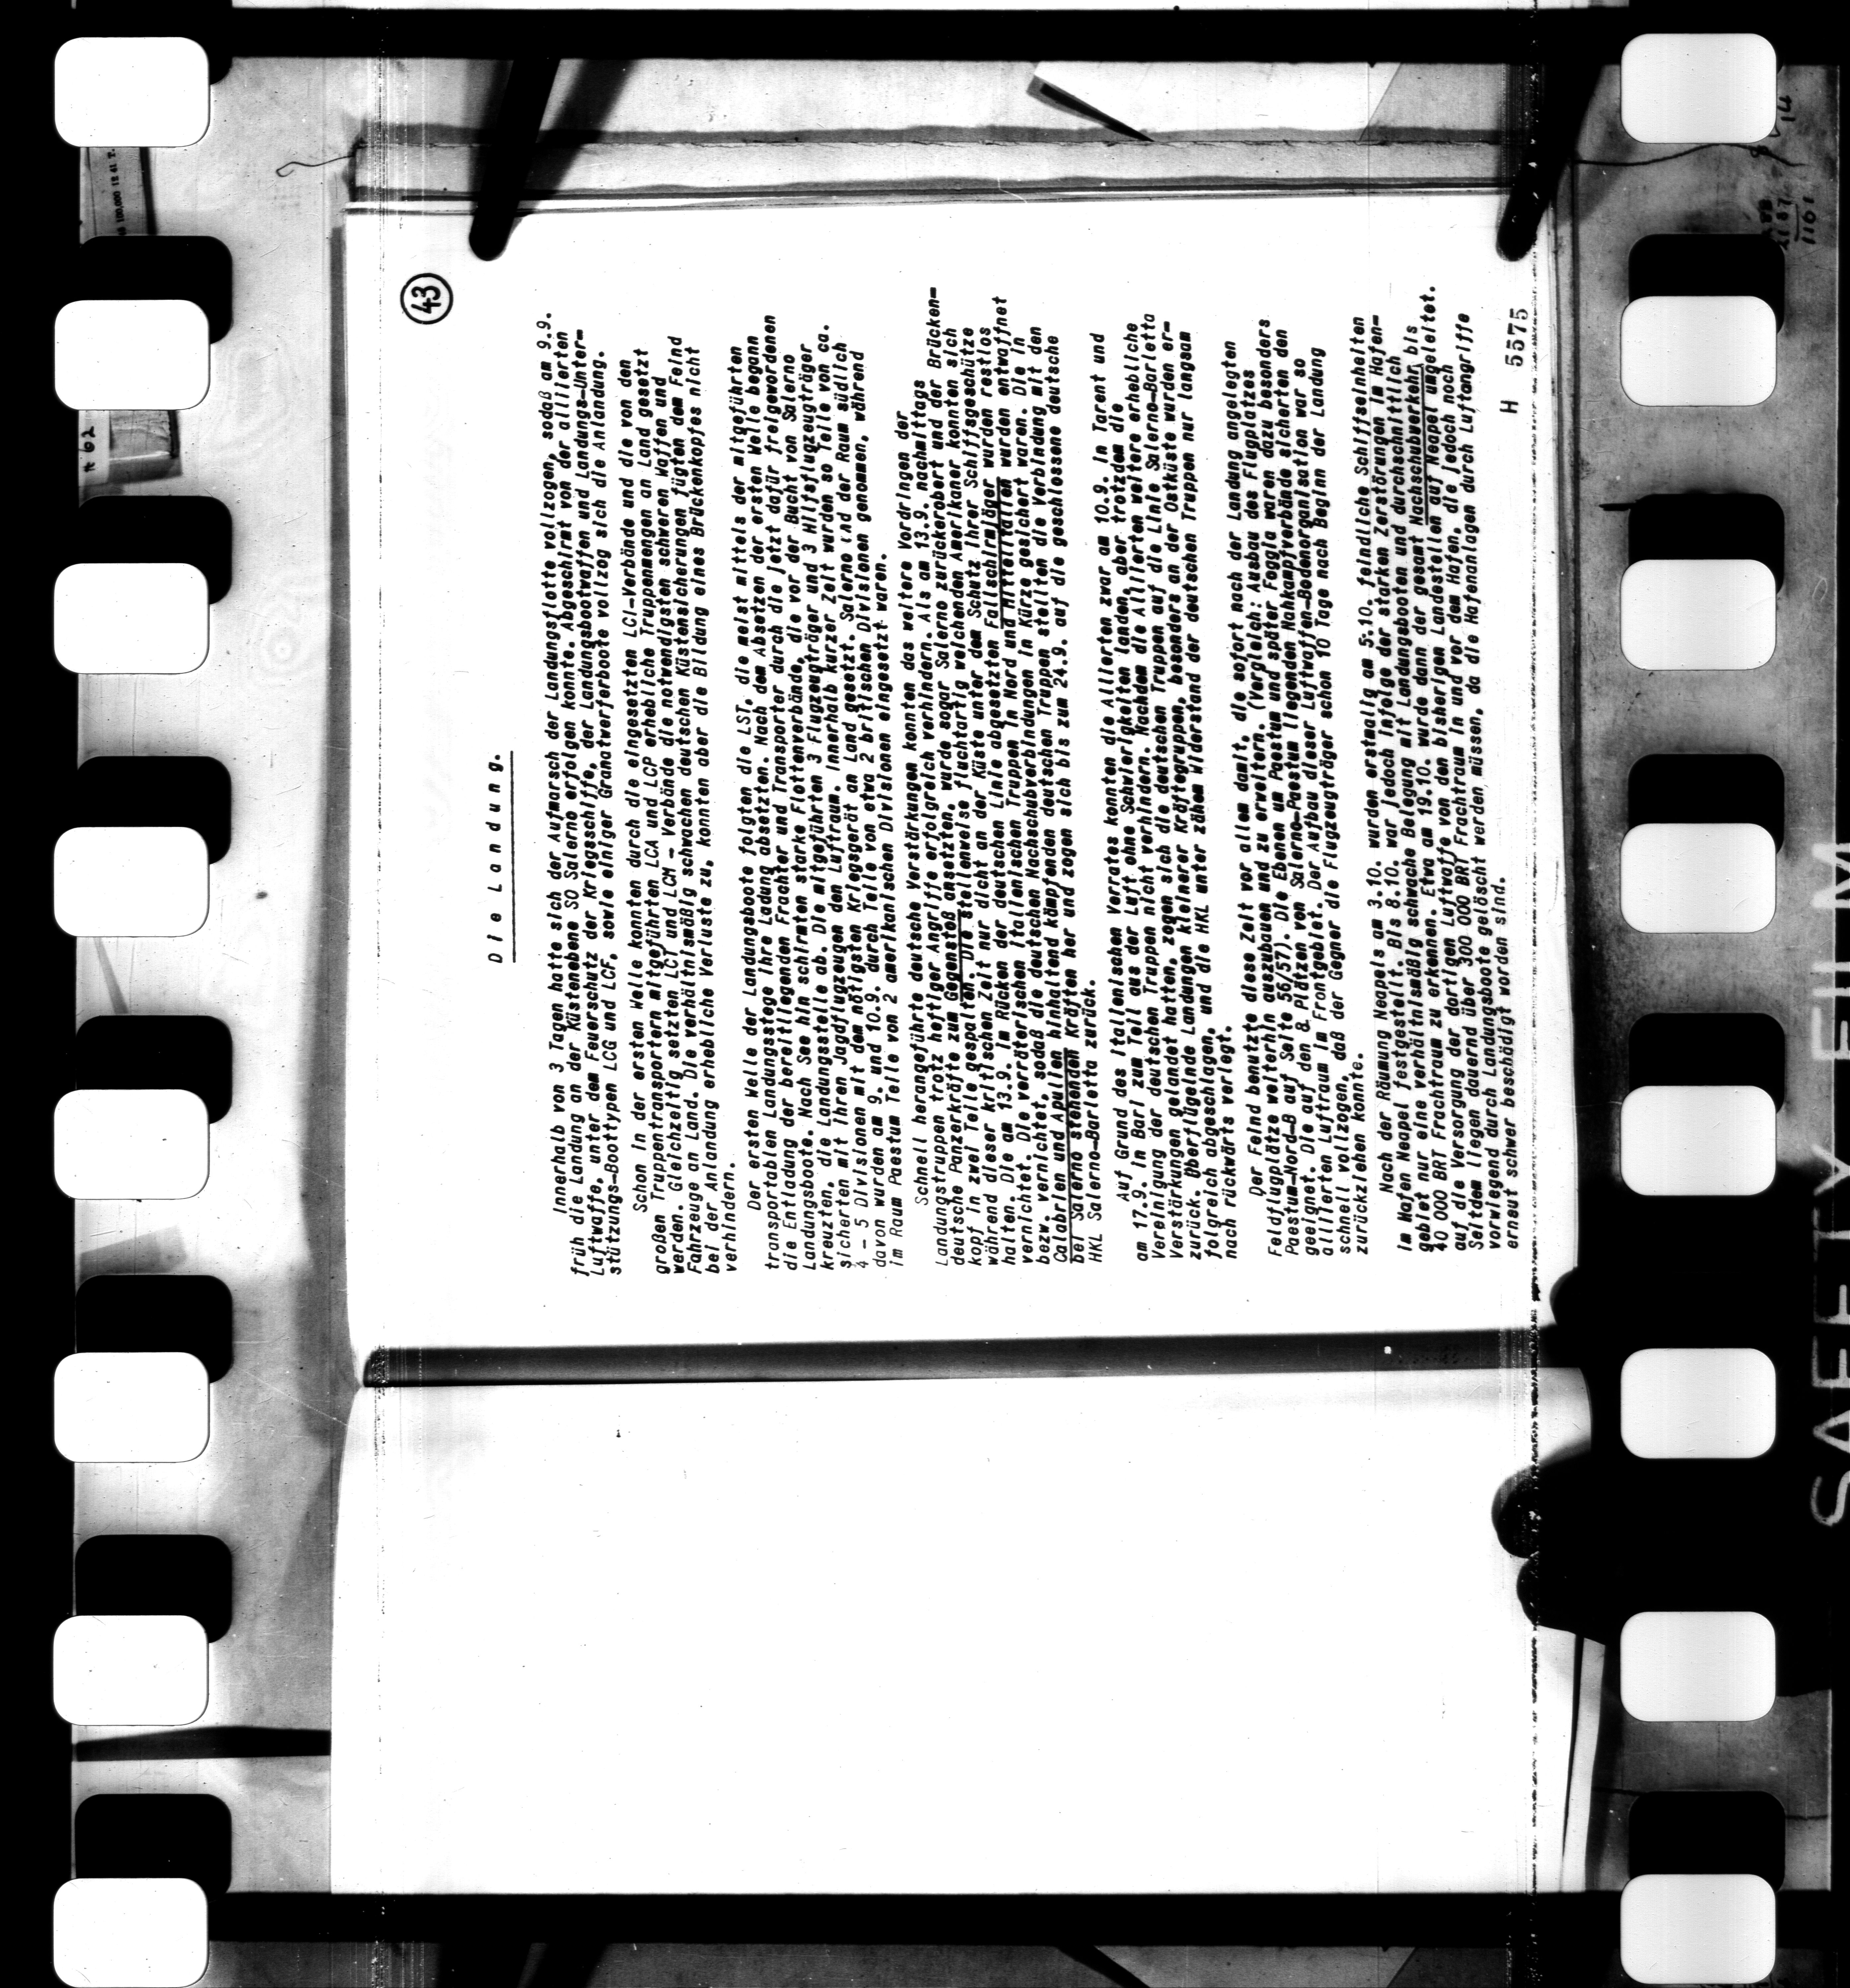 43
Die Landung.
Innerhalb von 3 Tagen hatte sich der Aufmarsch der Landungsflotte vollzogen, sodaß am 9.9.
früh die Landung an der Küstenebene SO Salerno erfolgen konnte. Abgeschirmt von der alliierten
Luftwaffe, unter dem Feuerschutz der Kriegsschiffe, der Landungsbootwaffen und Landungs-Unter-
stützungs-Boottypen LCG und LCF, sowie einiger Granatwerferboote vollzog sich die Anlandung.
Schon in der ersten Welle konnten durch die eingesetzten LCI-Verbände und die von den
großen Truppentransportern mitgeführten LCA und LCP erhebliche Truppenmengen an Land gesetzt
werden. Gleichzeitig setzten LCT und LCM - Verbände die notwendigsten schweren Waffen und
Fahrzeuge an Land. Die verhältnismäßig schwachen deutschen Küstensicherungen fügten dem Feind
bei der Anlandung erhebliche Verluste zu, konnten aber die Bildung eines Brückenkopfes nicht
verhindern.
Der ersten Welle der Landungsboote folgten die LST, die meist mittels der mitgeführten
transportablen Landungsstege ihre Ladung absetzten. Nach dem Absetzen der ersten Welle begann
die Entladung der bereitliegenden Frachter und Transporter durch die jetzt dafür freigewordenen
Landungsboote. Nach See hin schirmten starke Flottenverbände, die vor der Bucht von Salerno
kreuzten, die Landungsstelle ab. Die mitgeführten 3 Flugzeugträger und 3 Hilfsflugzeugträger
sicherten mit ihren Jagdflugzeugen den Luftraum. Innerhalb kurzer Zeit wurden so Teile von ca.
4 - 5 Divisionen mit dem nötigsten Kriegsgerät an Land gesetzt. Salerno und der Raum südlich
davon wurden am 9. und 10.9. durch Teile von etwa 2 britischen Divisionen genommen, während
im Raum Paestum Teile von 2 amerikanischen Divisionen eingesetzt waren.
Schnell herangeführte deutsche Verstärkungen konnten das weitere Vordringen der
Landungstruppen trotz heftiger Angriffe erfolgreich verhindern. Als am 13.9. nachmittags
deutsche Panzerkräfte zum Gegenstoß ansetzten, wurde sogar Salerno zurückerobert und der Brücken-
kopf in zwei Teile gespalten. Die stellenweise fluchtartig weichenden Amerikaner konnten sich
während dieser kritischen Zeit nur dicht an der Küste unter dem Schutz ihrer Schiffsgeschütze
halten. Die am 13.9. im Rücken der deutschen Linie abgesetzten Fallschirmjäger wurden restlos
vernichtet. Die verräterischen italienischen Truppen in Nord und Mittelitalien wurden entwaffnet
bezw. vernichtet, sodaß die deutschen Nachschubverbindungen in Kürze gesichert waren. Die in
Calabrien und Apulien hinhaltend kämpfenden deutschen Truppen stellten die Verbindung mit den
bei Salerno stehenden Kräften her und zogen sich bis zum 24.9. auf die geschlossene deutsche
HKL Salerno-Barletta zurück.
Auf Grund des italienischen Verrates konnten die Alliierten zwar am 10.9. in Tarent und
am 17.9. in Bari zum Teil aus der Luft ohne Schwierigkeiten landen, aber trotzdem die
Vereinigung der deutschen Truppen nicht verhindern. Nachdem die Alliierten weitere erhebliche
Verstärkungen gelandet hatten, zogen sich die deutschen Truppen auf die Linie Salerno-Barletta
zurück. Überflügelnde Landungen kleinerer Kräftegruppen, besonders an der Ostküste wurden er-
folgreich abgeschlagen, und die HKL unter zähem Widerstand der deutschen Truppen nur langsam
nach rückwärts verlegt.
Der Feind benutzte diese Zeit vor allem damit, die sofort nach der Landung angelegten
Feldflugplätze weiterhin auszubauen und zu erweitern. (Vergleich: Ausbau des Flugplatzes
Paestum-Nord-B auf Seite 56/57). Die Ebenen um Paestum und später Foggia waren dazu besonders
geeignet. Die auf den 8 Plätzen von Salerno-Paestum liegenden Nahkampfverbände sicherten den
alliierten Luftraum im Frontgebiet. Der Aufbau dieser Luftwaffen-Bodenorganisation war so
schnell vollzogen, daß der Gegner die Flugzeugträger schon 10 Tage nach Beginn der Landung
zurückziehen konnte.
Nach der Räumung Neapels am 3.10. wurden erstmalig am 5.10. feindliche Schiffseinheiten
im Hafen Neapel festgestellt. Bis 8.10. war jedoch infolge der starken Zerstörungen im Hafen-
gebiet nur eine verhältnismäßig schwache Belegung mit Landungsbooten und durchschnittlich
40 000 BRT Frachtraum zu erkennen. Etwa am 19.10. wurde dann der gesamt Nachschubverkehr, bis
auf die Versorgung der dortigen Luftwaffe von den bisherigen Landestellen auf Neapel umgeleitet.
Seitdem liegen dauernd über 300 000 BRT Frachtraum in und vor dem Hafen, die jedoch noch
vorwiegend durch Landungsboote gelöscht werden müssen, da die Hafenanlagen durch Luftangriffe
erneut schwer beschädigt worden sind.
H 5575
SAFETY FILM